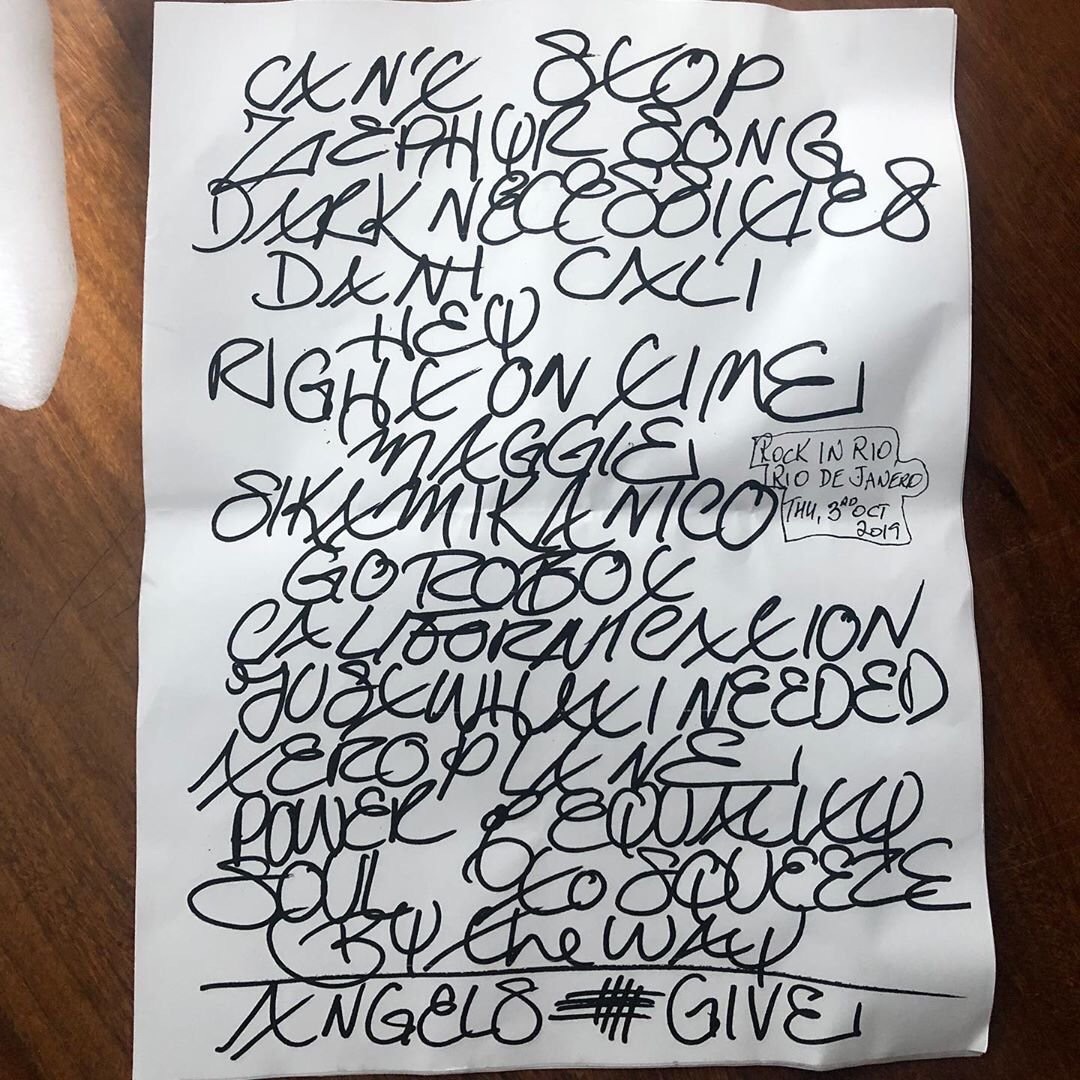 CAN'T STOP
ZEPHYR SONG
DARK NECESSITIES
DANI CALI
HEY
RIGHT ON TIME
MAGGIE
SIKAMIKANICO
GO ROBOT
CALIFORNICATION
JUST WHAT I NEEDED
AEROPLANE
POWER OF EQUALITY
SOUL TO SQUEEZE
(BY the WAY)
ANGELS GIVE
ROCK IN RIO
RIO DE JANERO
THU, 3RD OCT
2019